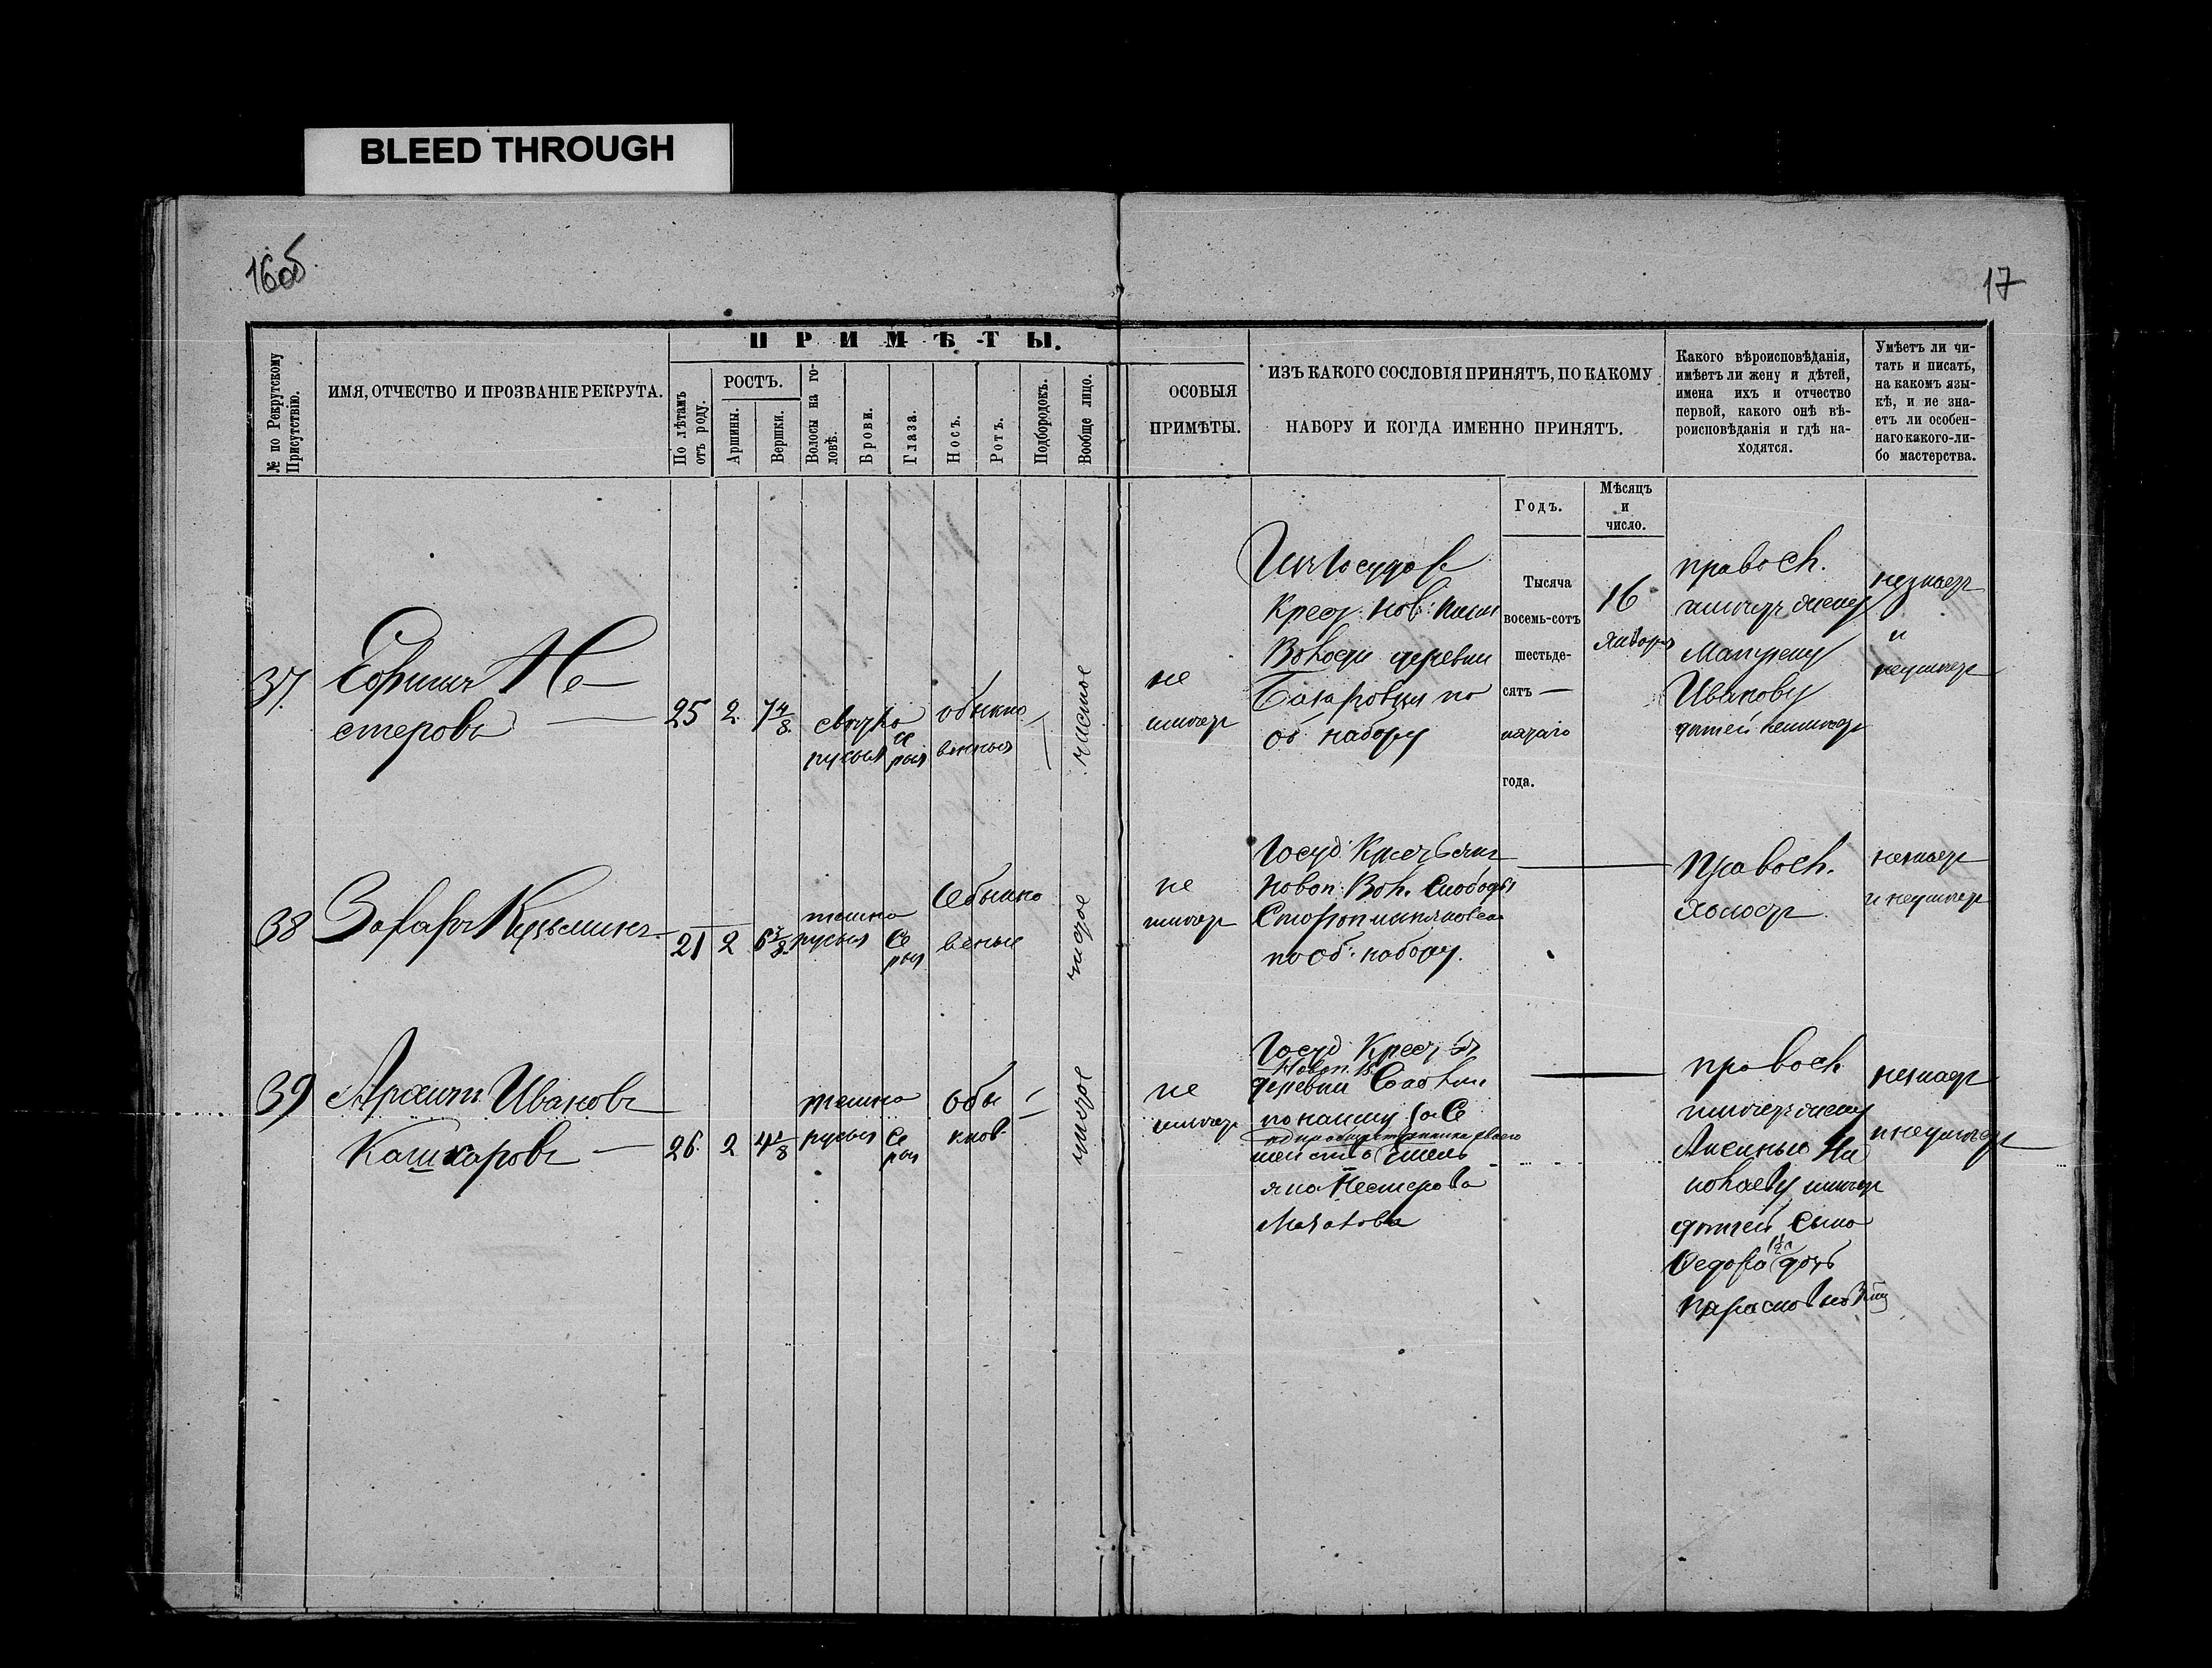 BLEED THROUGH
16об.
17
ПРИМѢТЫ.
№ по Рекрутскому Присутствію.
ИМЯ, ОТЧЕСТВО И ПРОЗВАНІЕ РЕКРУТА.
По лѣтамъ отъ роду.
РОСТЪ.
Аршины.
Вершки.
Волосы на го-
ловѣ.
Брови.
Глаза.
Носъ.
Ротъ.
Подбородокъ.
Вообще лицо.
ОСОБЫЯ
ПРИМѢТЫ.
ИЗЪ КАКОГО СОСЛОВІЯ ПРИНЯТЪ, ПО КАКОМУ
НАБОРУ И КОГДА ИМЕННО ПРИНЯТЪ.
Какого вѣроисповѣданія,
имѣетъ ли жену и дѣтей,
имена ихъ и отчество
первой, какого онѣ вѣ-
роисповѣданія и гдѣ на-
ходятся.
Умѣетъ ли чи-
тать и писать,
на какомъ язы-
кѣ, и не зна-
етъ ли особен-
наго какого-ли-
бо мастерства.
Годъ.
Мѣсяцъ
и
число.
37.
Не
стеровъ
25 2 7 4/8
свѣтло
русыя
сѣ
рыя
обыкно
венныя
чистое
не
имѣетъ
Изъ Государ
Крест. Нов:
Волости деревни
по
об набору
Тысяча
восемь-сотъ
шестьде-
сятъ —
года.
16
Января
правосл.
имѣетъ жену
Матрену
Иванову
дѣтей неимѣетъ
незнаетъ
и
неумѣетъ
38
Захаръ Кузьминъ
21 2 6
темно
русыя
Сѣ
рыя
Обыкно
веные
чистое
не
имѣетъ
Госуд. Крестьянъ
Новоп. Вол. Слободы
по об. набору.
Правосл.
Холостъ
незнаетъ
и неумѣетъ
39
Архипъ Ивановъ
Кашкаровъ
26. 2 4
темно
русыя
Сѣ
рыя
обы
кнов
чистое
не
имѣетъ
Госуд. Крест.
Новоп. В.
деревни
по найму за Се
мейство Емель
яна Нестерова
правосл
имѣетъ жену
Аксинью Ни
колаеву имѣетъ
дѣтей Сына
Федора 1½ дочь
Парасковью
незнаетъ
и неумѣетъ